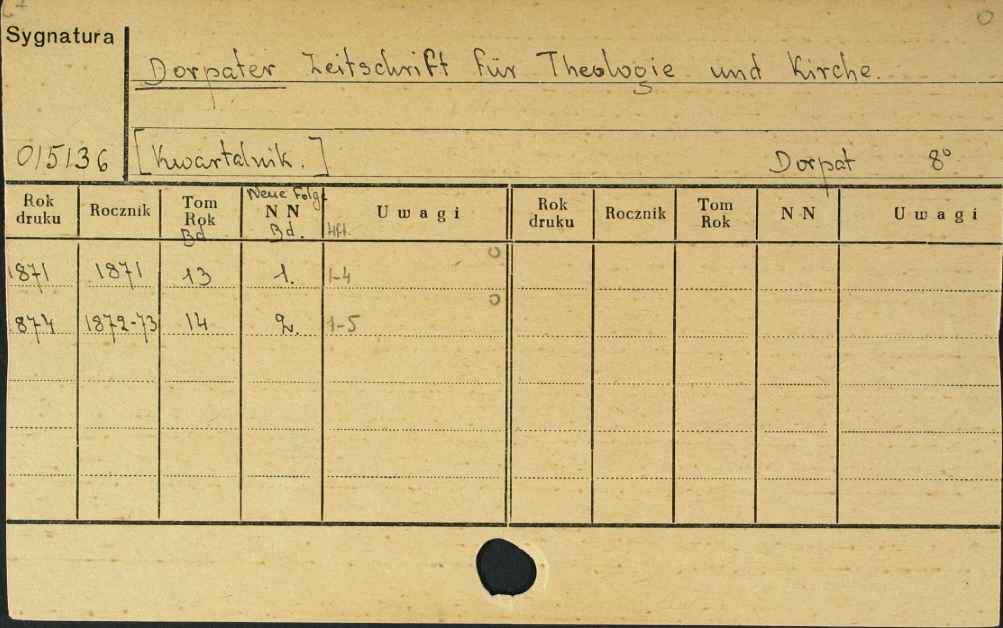 Sygnatura
Dorpater Zeitschrift für Theologie und Kirche.
015136 [Kwartalnik.] Dorpat 8°
Rok druku Rocznik Tom Rok Bd. Neue Folge NN Bd. Uwagi Hft. Rok druku Rocznik Tom Rok NN Uwagi
1871 1871 13 1. 1-4
874 1872-73 14 2. 1-5